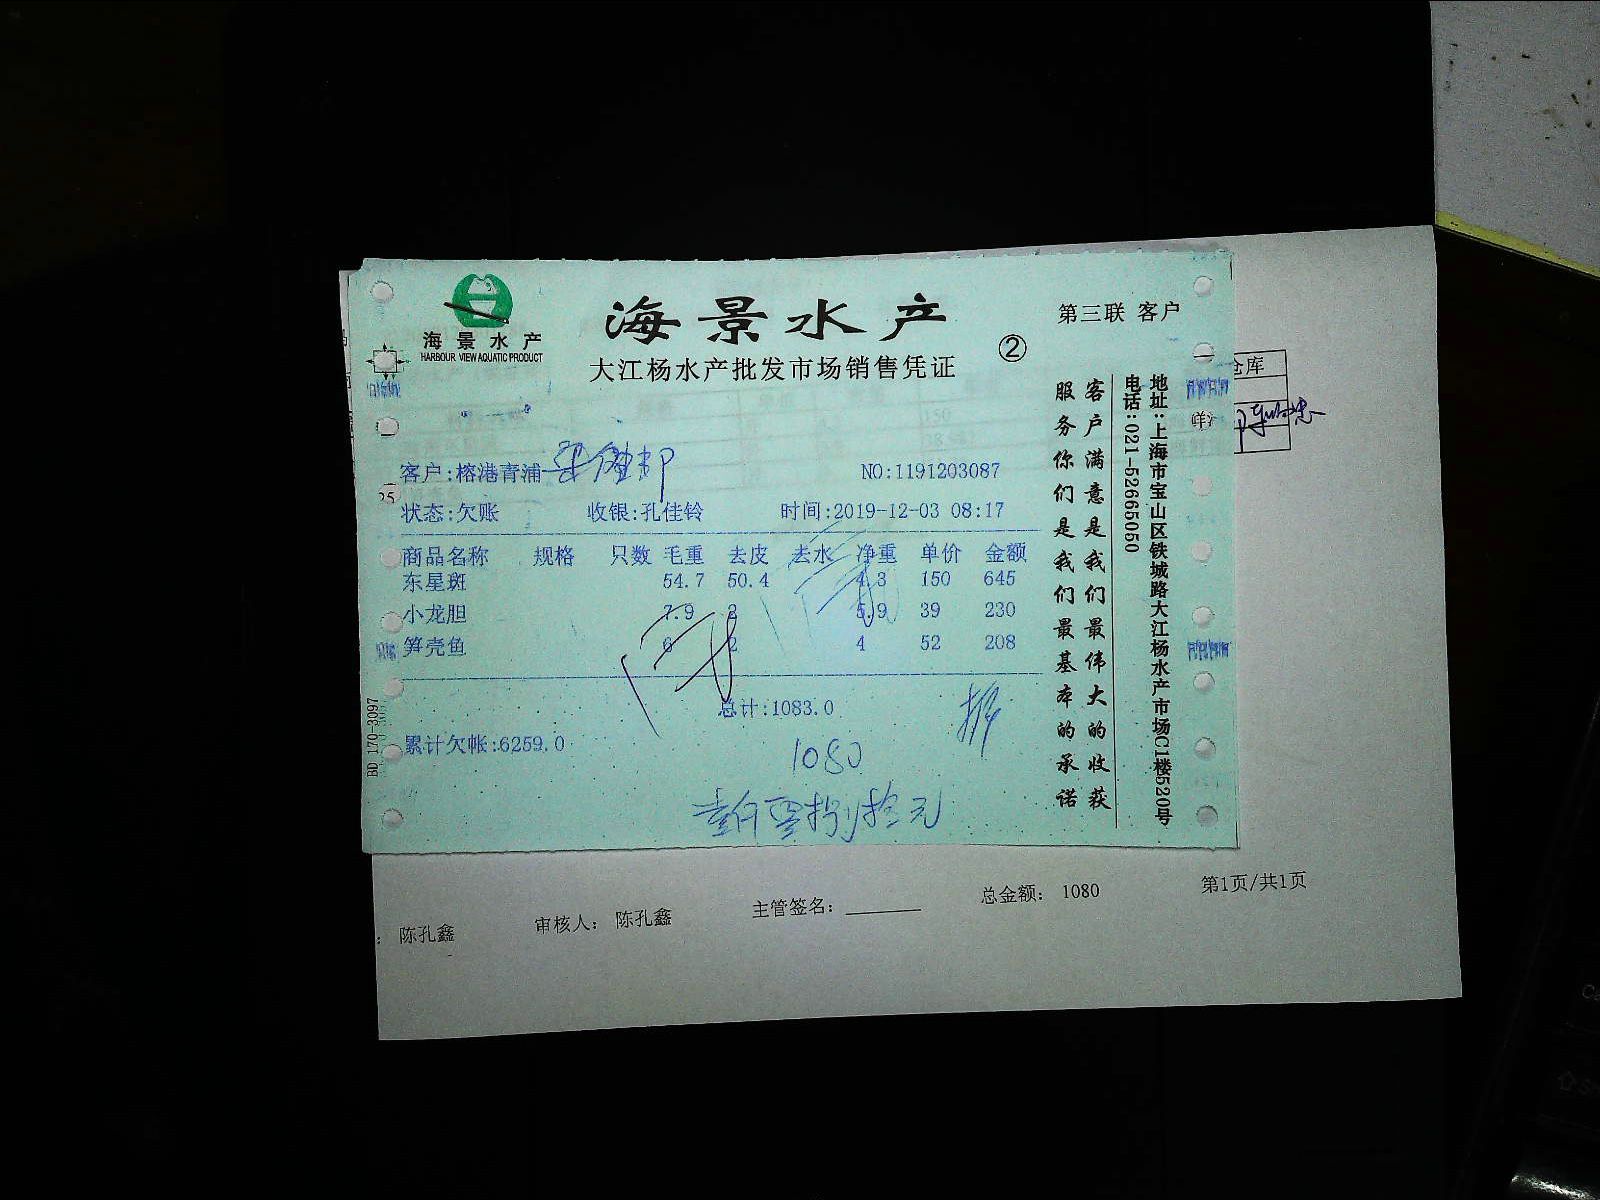 海景水产
HARBOUR VIEW AQUATIC PRODUCT
海景水产
大江杨水产批发市场销售凭证
②
第三联 客户
客户:榕港青浦
NO:1191203087
状态:欠账 收银:孔佳铃 时间:2019-12-03 08:17
商品名称 规格 只数 毛重 去皮 去水 净重 单价 金额
东星斑 54.7 50.4 4.3 150 645
小龙胆 7.9 2 5.9 39 230
笋壳鱼 6 2 4 52 208
总计:1083.0
累计欠帐:6259.0
1080
壹仟零捌拾元
客户满意是我们最伟大的收获
服务你们是我们最基本的承诺
地址:上海市宝山区铁城路大江杨水产市场C1楼520号
电话:021-52665050
BD 170-3097
仓库
陈孔鑫 审核人: 陈孔鑫 主管签名: 总金额: 1080 第1页/共1页